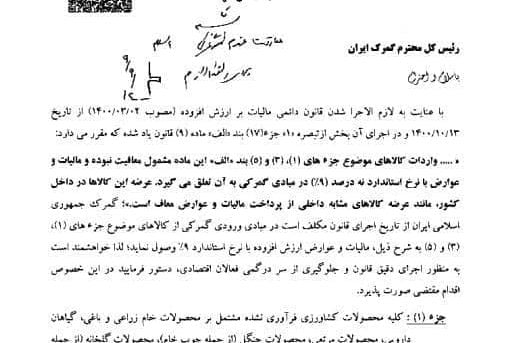 رئیس کل محترم گمرک ایران
باسلام و احترام
با عنایت به لازم الاجرا شدن قانون دائمی مالیات بر ارزش افزوده (مصوب ۱۴۰۰/۰۳/۰۲) از تاریخ
۱۴۰۰/۱۰/۱۳ و در اجرای آن بخش ازتبصره «۱» جزء(۱۷) بند «الف» ماده (۹) قانون یاد شده که مقرر می دارد:
«..... واردات کالاهای موضوع جزء های (۱)، (۳) و (۵) بند «الف» این ماده مشمول معافیت نبوده و مالیات و
عوارض با نرخ استاندارد نه درصد (۹٪) در مبادی گمرکی به آن تعلق می گیرد. عرضه این کالاها در داخل
کشور، مانند عرضه کالاهای مشابه داخلی از پرداخت مالیات و عوارض معاف است.»؛ گمرک جمهوری
اسلامی ایران از تاریخ اجرای قانون مکلف است در مبادی ورودی گمرکی از کالاهای موضوع جزء های (۱)،
(۳) و (۵) به شرح ذیل، مالیات و عوارض ارزش افزوده با نرخ استاندارد ۹٪ وصول نماید؛ لذا خواهشمند است
به منظور اجرای دقیق قانون و جلوگیری از سر درگمی فعالان اقتصادی، دستور فرمایید در این خصوص
اقدام مقتضی صورت پذیرد.
جزء (۱) : کلیه محصولات کشاورزی فرآوری نشده مشتمل بر محصولات خام زراعی و باغی، گیاهان
دارویی، محصولات مرتعی، محصولات جنگل (از جمله چوب خام)، محصولات گلخانه (از جمله